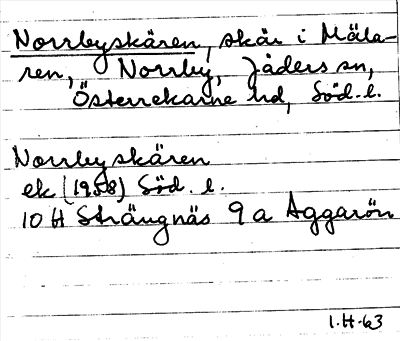 Norrbyskären, skär i Mäla-
ren, Norrby, Jåders sn,
Österrekarne hd, Söd. l.
Norrbyskären
ek (1958) Söd. l.
10 H Strängnäs 9 a Aggarön
1.H-63